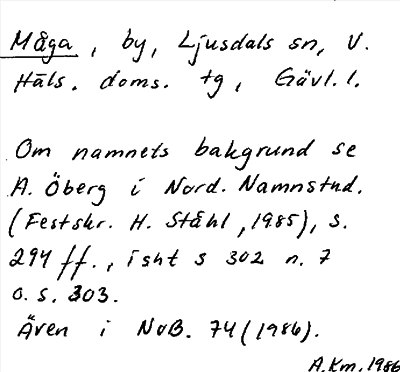 Måga, by, Ljusdals sn, V.
Häls. doms. tg, Gävl. l.
Om namnets bakgrund se
A. Öberg i Nord. Namnstud.
(Festskr. H. Ståhl, 1985), s.
294 ff., isht s 302 n. 7
o. s. 303.
Även i NoB. 74 (1986).
A. Km, 1986